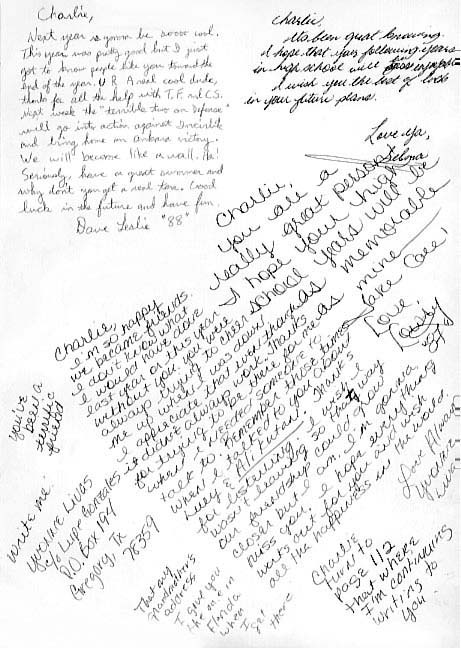 Charlie,
Next year is gonna be soooo cool.
This year was pretty good but I just
got to know people like you toward the
end of the year. U R A real cool dude,
thanks for all the help with T.F. and C.S.
Next week the "terrible two on Defense"
will go into action against Invincible
and bring home an ankara victory.
We will become like a wall. Ha!
Seriously, have a great summer and
why don't you get a real tan. Good
luck in the future and have fun.
Dave Leslie "88"
Charlie,
It's been great knowing.
I hope that your following years
in high school will
I wish you the best of luck
in your future plans.
Love Ya,
Charlie,
You are a
really great person!
I hope your high
school years will be
as memorable
as mine
Take Care!
Love,
Charlie,
I'm so happy
we became friends.
I don't know what
I would have done
last year or this year
without you. You were
always trying to cheer
me up when I was down
I appreciate that even though
it didn't always work. Thanks
for trying to be there for me
when I needed someone to
talk to. Remember those times
when I talked to you about
Luey & Ali Putan. Thanks
for listening. I wish I
wasn't leaving so that way
our friendship could grow
closer but I am. I'm gonna
miss you. I hope everything
works out for you and wish
all the happiness in the world.
Love Always
Yvonne
you've
been a
terrific
friend
Write me.
Yvonne Livas
c/o Lupe Gonzales
P.O. Box 194
Gregory, Tx
78359
That my
Grandmother's
address
I'll give you
the one in
Florida
when
I get
there
Charlie
turn to
page 112
that where
I'm continuing
writing to
you.